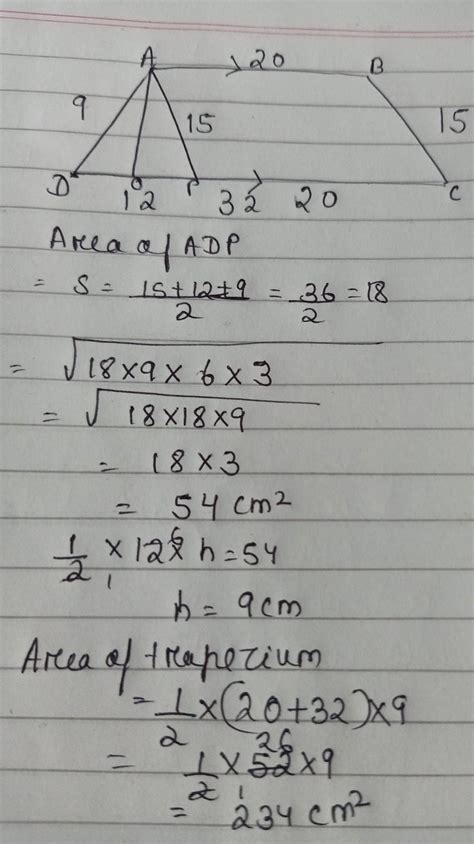 A 20 B
9 15 15
D 12 P 32 20 C
Area of ADP
= S = 15+12+9/2 = 36/2 = 18
= √18×9×6×3
= √18×18×9
= 18×3
= 54 cm²
1/2 × 12 6 × h = 54
1
h = 9cm
Area of trapezium
= 1/2 × (20+32)×9
= 1/2 × 52 26 × 9
1
= 234 cm²